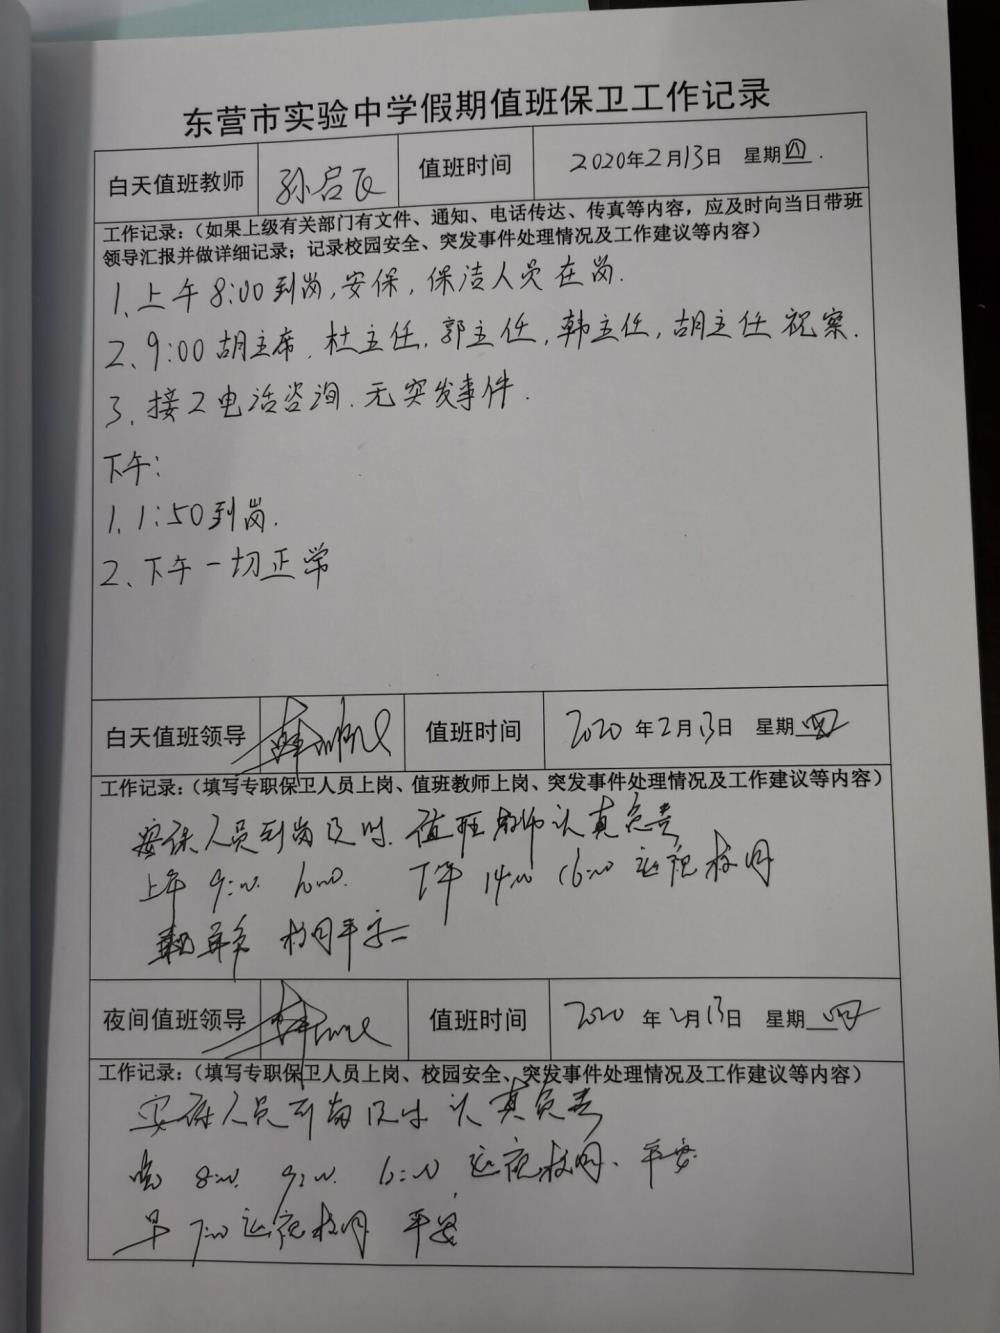 东营市实验中学假期值班保卫工作记录
白天值班教师 孙启飞 值班时间 2020年2月13日 星期四.
工作记录：（如果上级有关部门有文件、通知、电话传达、传真等内容，应及时向当日带班
领导汇报并做详细记录；记录校园安全、突发事件处理情况及工作建议等内容）
1、上午8:00到岗,安保,保洁人员在岗.
2、9:00胡主席、杜主任,郭主任,韩主任,胡主任视察.
3、接2电话咨询、无突发事件.
下午:
1、1:50到岗.
2、下午一切正常
白天值班领导 值班时间 2020年2月13日 星期四
工作记录：（填写专职保卫人员上岗、值班教师上岗、突发事件处理情况及工作建议等内容）
安保人员到岗及时、值班教师认真负责
上午 9:00. 10:00. 下午 14:00 16:00 巡视校园
校园平安
夜间值班领导 值班时间 2020年2月13日 星期四
工作记录：（填写专职保卫人员上岗、校园安全、突发事件处理情况及工作建议等内容）
安保人员到岗及时 认真负责
晚 8:00. 9:00. 巡视校园、平安.
早 7:00 巡视校园 平安